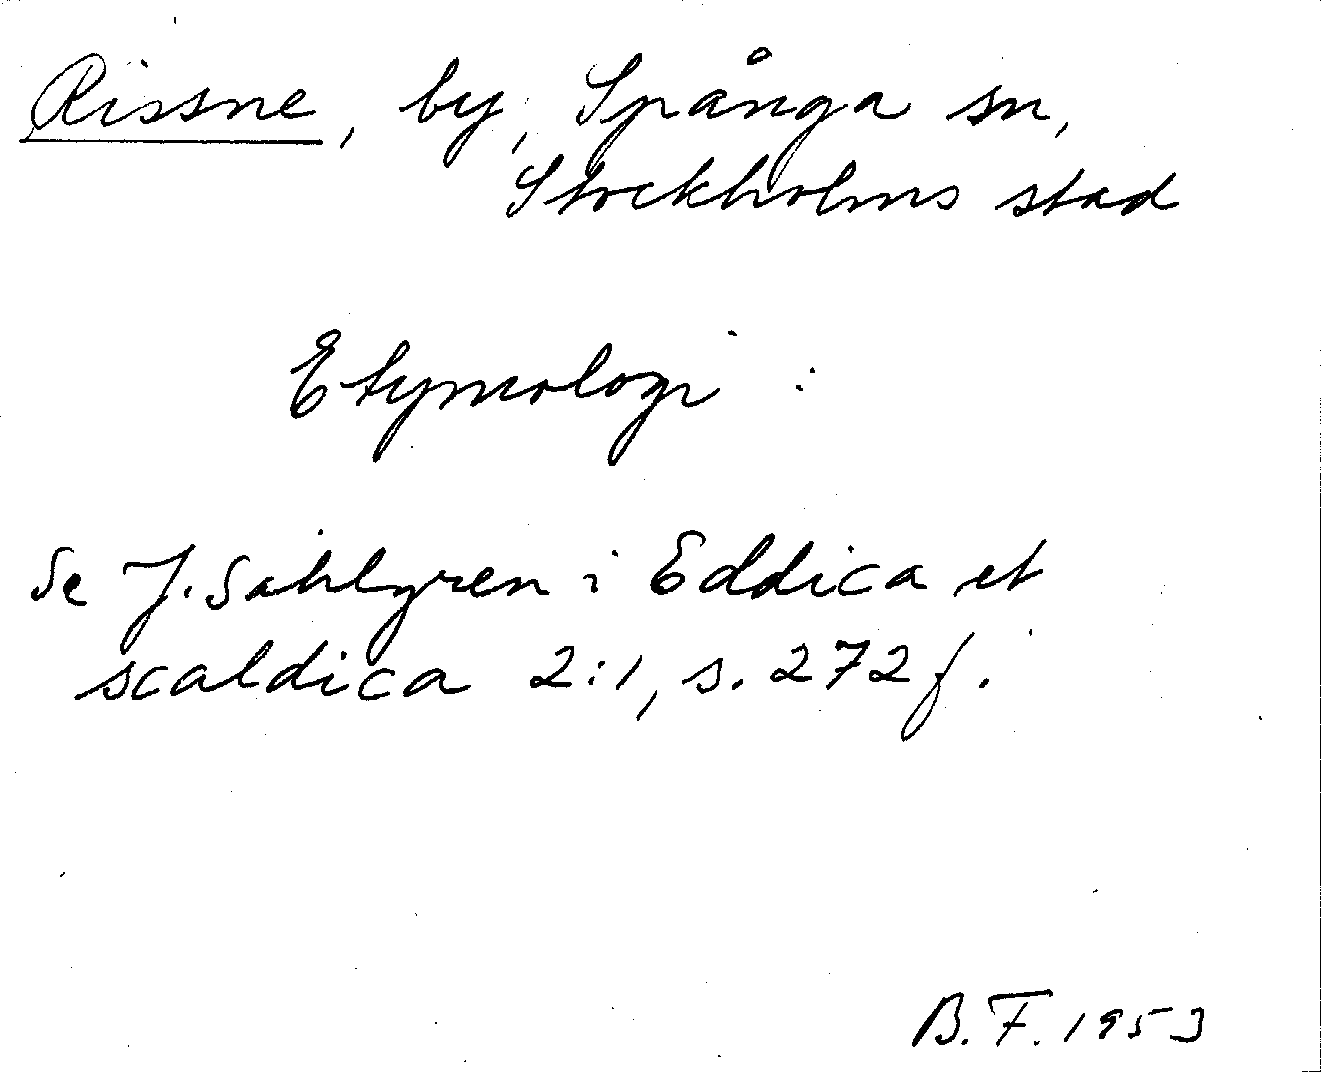 Rissne, by, Spånga sn,
Stockholms stad
Etymologi :
Se J. Sahlgren i Eddica et
scaldica 2:1, s. 272 f.
B. F. 1953